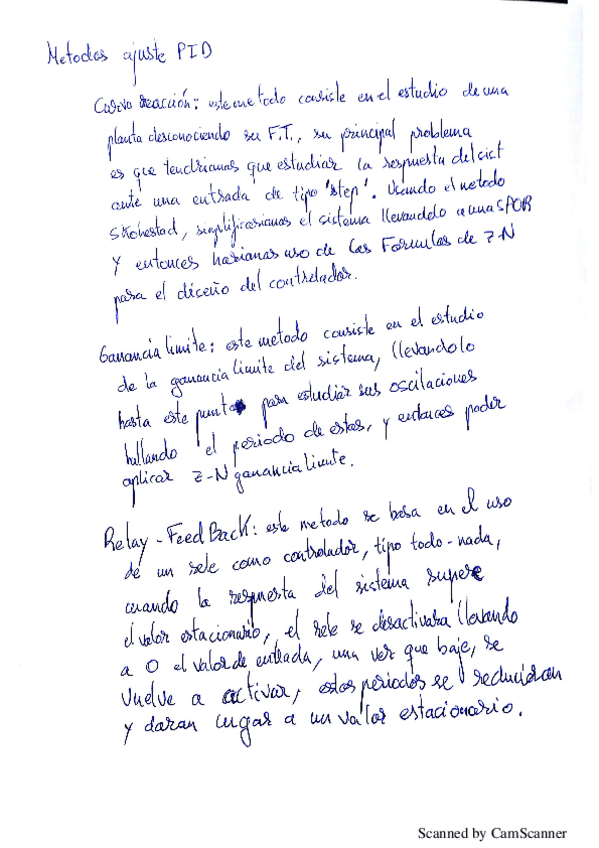 Metodos ajuste PID
Curva reacción: este metodo consiste en el estudio de una
planta desconociendo su F.T., su principal problema
es que tendriamos que estudiar la respuesta del sist
ante una entrada de tipo 'step'. Usando el metodo
Skohestad, simplificariamos el sistema llevandolo a una SPOR
y entonces hariamos uso de las Formulas de Z-N
para el diceño del controlador.
Ganancia limite: este metodo consiste en el estudio
de la ganancia limite del sistema, llevandolo
hasta este punto para estudiar sus oscilaciones
hallando el periodo de estas, y entonces poder
aplicar Z-N ganancia limite.
Relay-FeedBack: este metodo se basa en el uso
de un rele como controlador, tipo todo-nada,
cuando la respuesta del sistema supere
el valor estacionario, el rele se desactivara llevando
a 0 el valor de entrada, una vez que baje, se
vuelve a activar, estos periodos se reduciran
y daran lugar a un valor estacionario.
Scanned by CamScanner